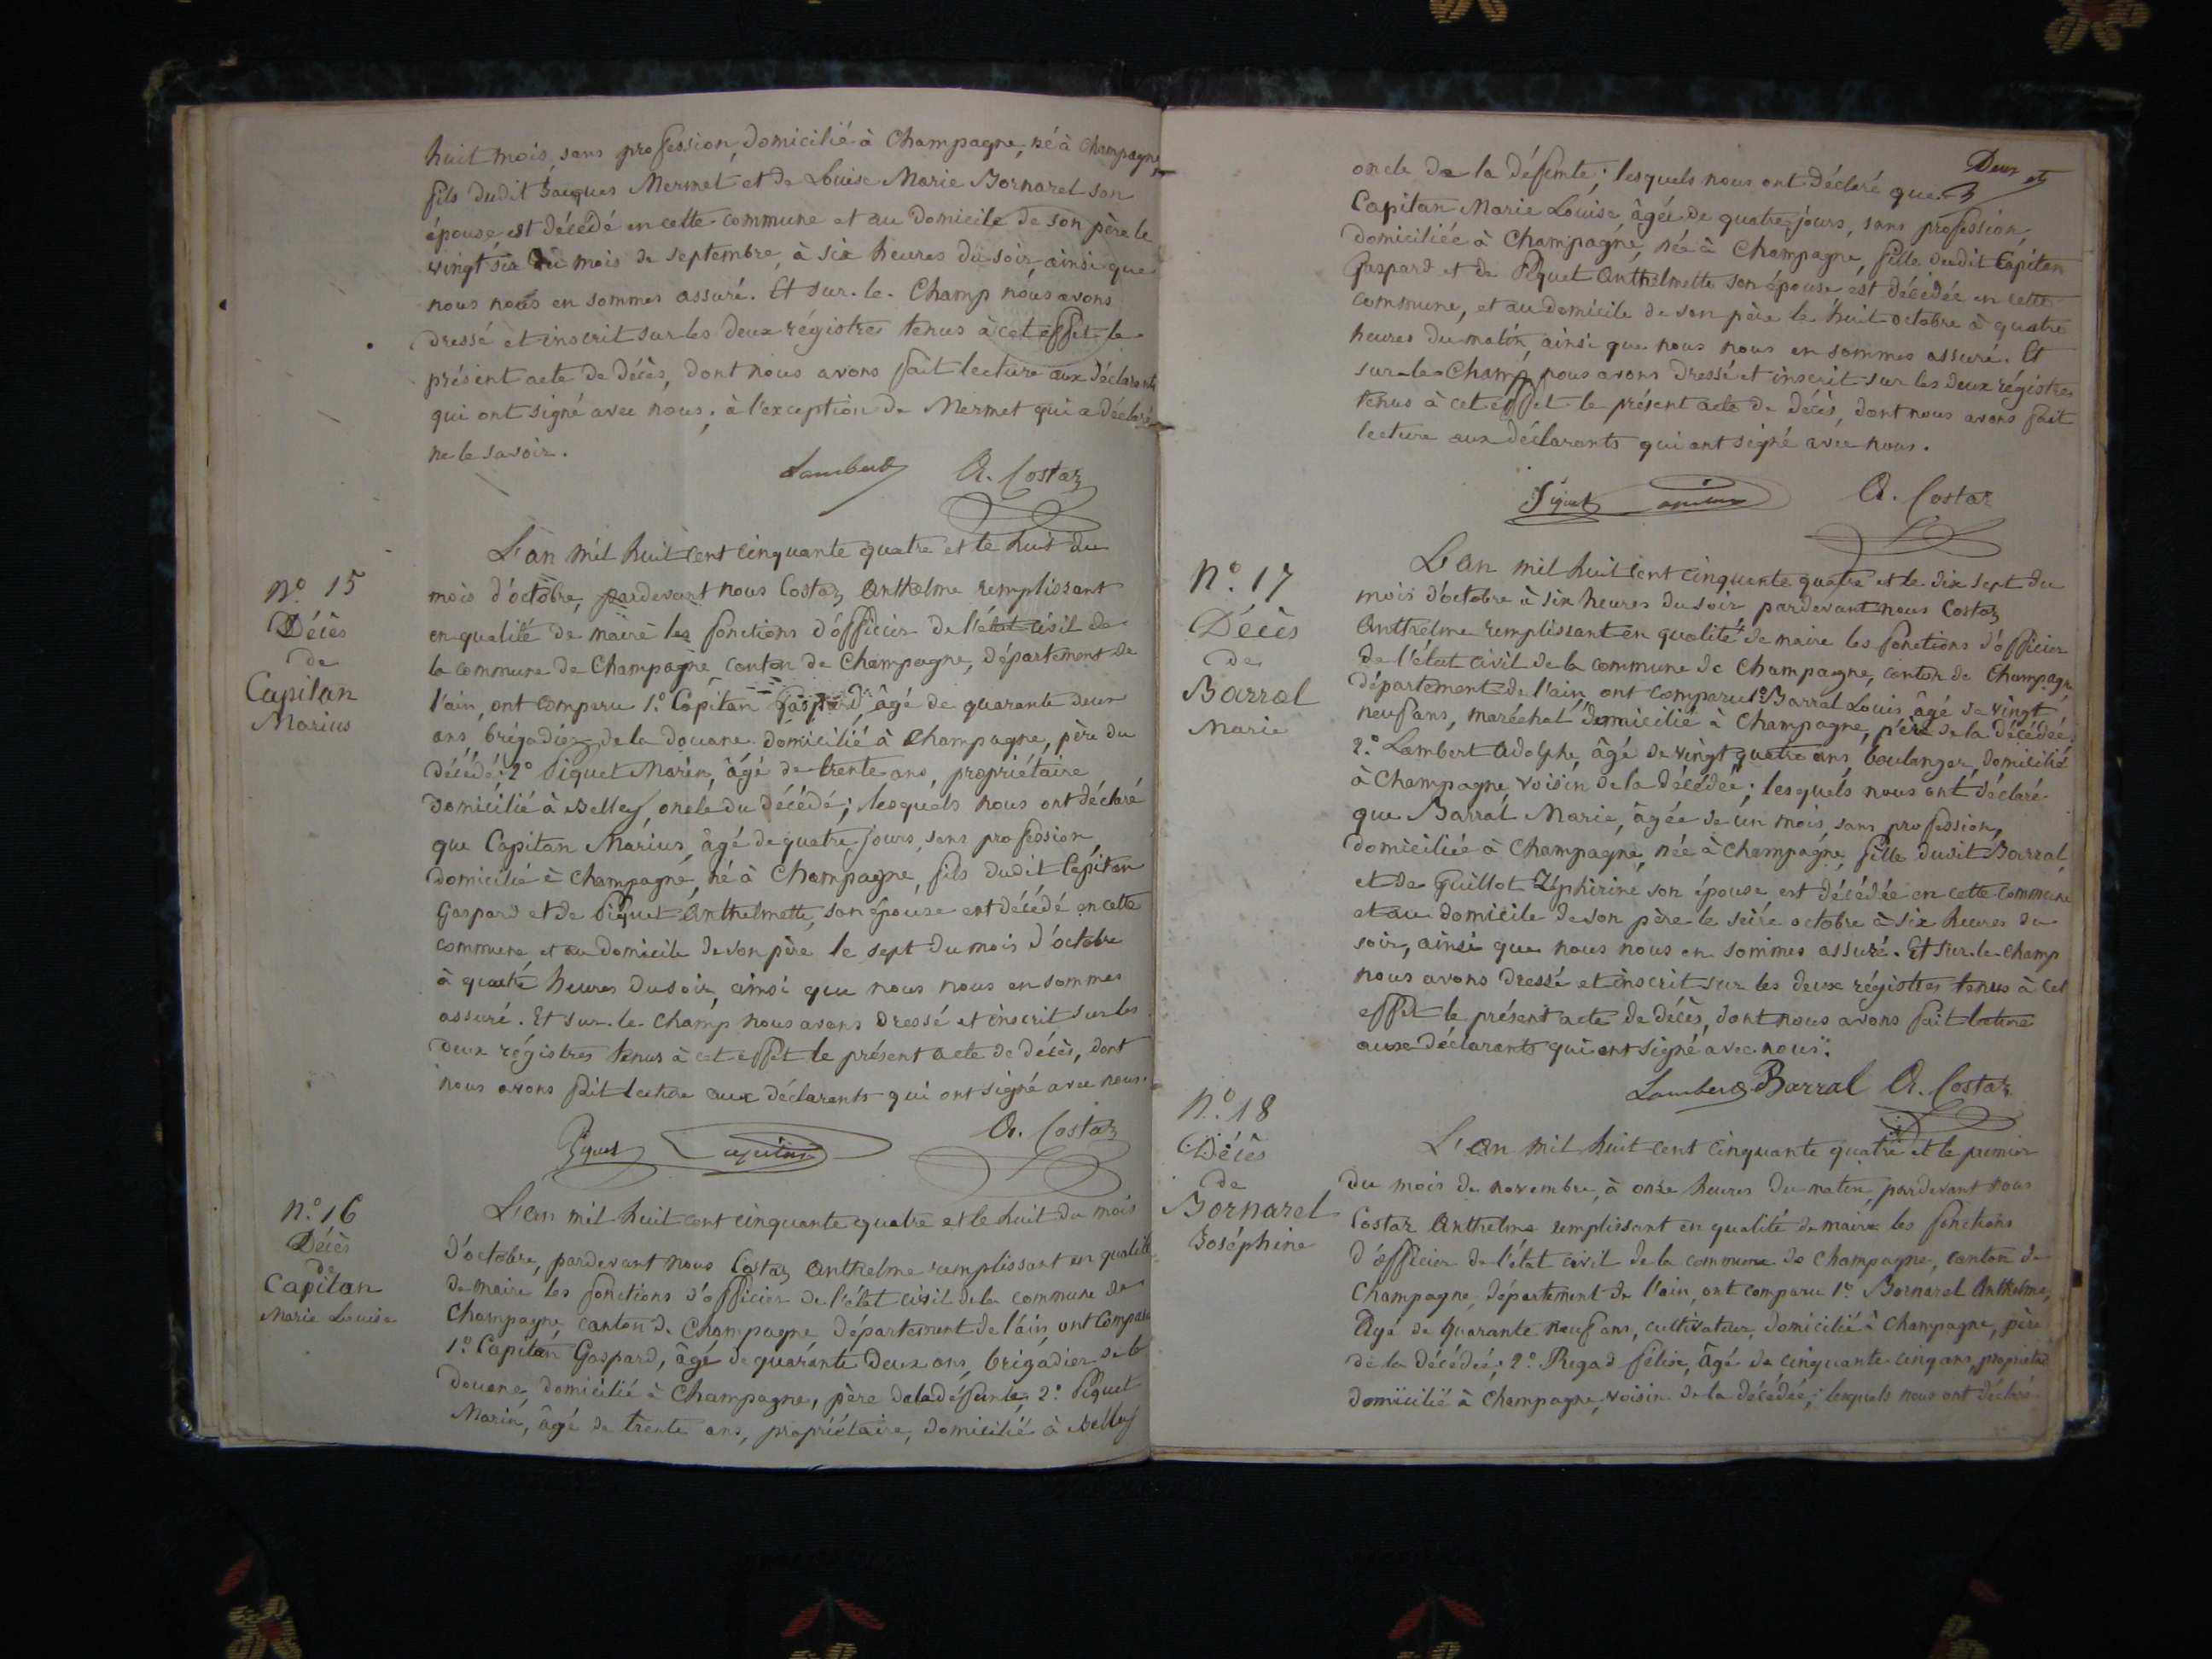 huit mois, sans profession, domicilié à Champagne, né à Champagne
fils dudit Jacques Mermet et de Louise Marie Bornarel son
épouse est décédé en cette commune et au domicile de son père le
vingt six du mois de septembre, à six heures du soir, ainsi que
nous nous en sommes assuré. Et sur-le-Champ nous avons
dressé et inscrit sur les deux régistres tenus à cet effet le
présent acte de décès, dont nous avons fait lecture aux déclarants
qui ont signé avec nous, à l'exception de Mermet qui a déclaré
ne le savoir.
Lambert A. Costaz
N° 15
Décès
de
Capitan
Marius
L'an mil huit cent cinquante quatre et le huit du
mois d'octobre, pardevant nous Costaz Anthelme remplissant
en qualité de maire les fonctions d'officier de l'état civil de
la commune de Champagne, canton de Champagne, département de
l'ain, ont comparu 1° Capitan Gaspard, âgé de quarante deux
ans brigadier de la douane domicilié à Champagne, père du
décédé; 2° Piquet Marin, âgé de trente ans, propriétaire
domicilié à Belley, oncle du décédé; lesquels nous ont déclaré
que Capitan Marius, âgé de quatre jours, sans profession,
domicilié à Champagne, né à Champagne, fils dudit Capitan
Gaspard et de Piquet Anthelmette, son épouse est décédé en cette
commune, et au domicile de son père le sept du mois d'octobre
à quatre heures du soir, ainsi que nous nous en sommes
assuré. Et sur-le-champ nous avons dressé et inscrit sur les
deux régistres tenus à cet effet le présent acte de décès, dont
nous avons fait lecture aux déclarants qui ont signé avec nous.
Piquet capitan A. Costaz
N° 16
Décès
de
Capitan
Marie Louise
L'an mil huit cent cinquante quatre et le huit du mois
d'octobre, pardevant nous Costaz Anthelme remplissant en qualité
de maire les fonctions d'officier de l'état civil de la commune de
Champagne, canton de Champagne, département de l'ain, ont comparu
1° Capitan Gaspard, âgé de quarante deux ans, brigadier de la
douane, domicilié à Champagne, père de la défunte; 2° Piquet
Marin, âgé de trente ans, propriétaire, domicilié à Belley
Deux et
oncle de la défunte; lesquels nous ont déclaré que
Capitan Marie Louise, âgée de quatre jours, sans profession,
domiciliée à Champagne, née à Champagne, fille dudit Capitan
Gaspard et de Piquet Anthelmette son épouse est décédée en cette
commune, et au domicile de son père le huit octobre à quatre
heures du matin, ainsi que nous nous en sommes assuré. Et
sur-le-Champ, nous avons dressé et inscrit sur les deux régistres
tenus à cet effet le présent acte de décès, dont nous avons fait
lecture aux déclarants qui ont signé avec nous.
Piquet capitan A. Costaz
N° 17
Décès
de
Barral
Marie
L'an mil huit cent cinquante quatre et le dix sept du
mois d'octobre à six heures du soir pardevant nous Costaz
Anthelme remplissant en qualité de maire les fonctions d'officier
de l'état civil de la commune de Champagne, canton de Champagne
département de l'ain, ont comparu 1° Barral Louis, âgé de vingt
neuf ans, maréchal domicilié à Champagne, père de la décédée;
2° Lambert Adolphe, âgé de vingt quatre ans, boulanger, domicilié
à Champagne, voisin de la décédée; lesquels nous ont déclaré
que Barral Marie, âgée de un mois, sans profession,
domiciliée à Champagne, née à Champagne, fille dudit Barral
et de Guillot Zéphirine son épouse est décédée en cette commune
et au domicile de son père le seize octobre à six heures du
soir, ainsi que nous nous en sommes assuré. Et sur-le-champ
nous avons dressé et inscrit sur les deux régistres tenus à cet
effet le présent acte de décès, dont nous avons fait lecture
aux déclarants qui ont signé avec nous.
Lambert Barral A. Costaz
N° 18
Décès
de
Bornarel
Joséphine
L'an mil huit cent cinquante quatre et le premier
du mois de novembre, à onze heures du matin, pardevant nous
Costaz Anthelme remplissant en qualité de maire les fonctions
d'officier de l'état civil de la commune de Champagne, canton de
Champagne, département de l'ain, ont comparu 1° Bornarel Anthelme,
âgé de quarante neuf ans, cultivateur, domicilié à Champagne, père
de la décédée; 2° Regad félix, âgé de cinquante cinq ans, propriétaire
domicilié à Champagne, voisin de la décédée; lesquels nous ont déclaré